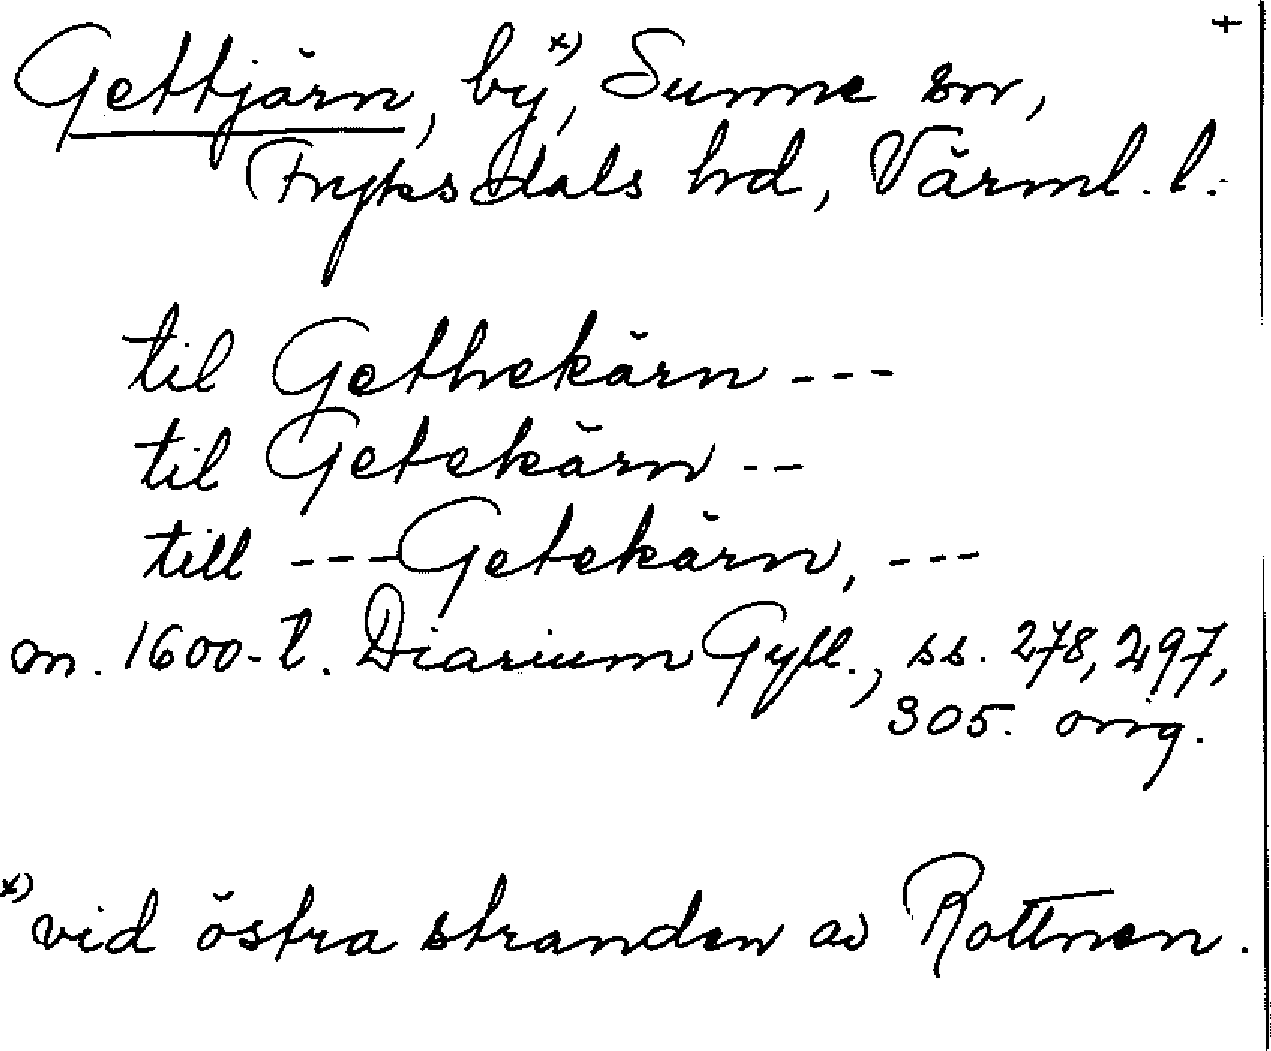 +
Gettjärn, by x), Sunne sn,
Fryksdals hd, Värml. l.
til Gethekärn ---
til Getekärn --
till --- Getekärn, ---
m. 1600-t. Diarium Gyll., ss. 278, 297,
305. orig.
x) vid östra stranden av Rottnen.